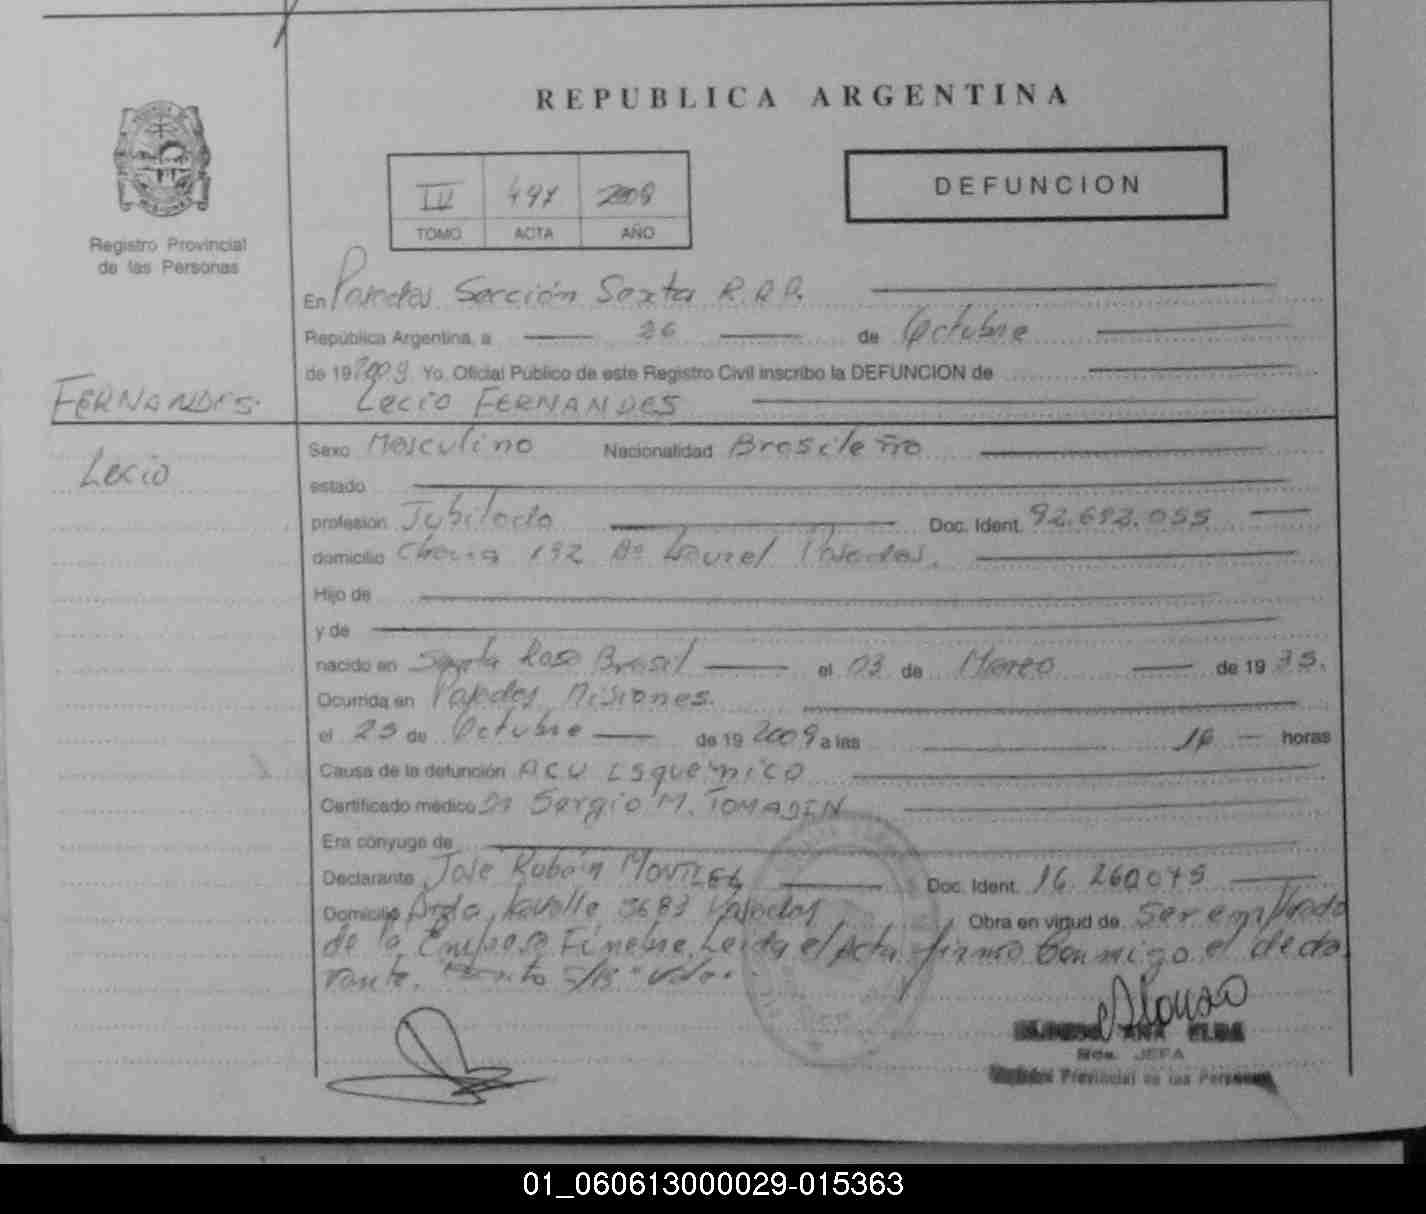 REPUBLICA ARGENTINA
DEFUNCION
IV 497 2009
TOMO ACTA AÑO
Registro Provincial
de las Personas
En Posadas Sección Sexta R.P.P.
República Argentina, a 26 de Octubre
de 19 2009 Yo, Oficial Público de este Registro Civil inscribo la DEFUNCION de
FERNANDES
Lecio FERNANDES
Lecio
Sexo Masculino Nacionalidad Brasileño
estado
profesión Jubilado Doc. Ident. 92.692.055
domicilio 192 Bº Laurel Posadas.
Hijo de
y de
nacido en Santa Rosa Brasil el 03 de Marzo de 19 35.
Ocurrida en Posadas Misiones.
el 25 de Octubre de 19 2009 a las 16 horas
Causa de la defunción ACV Isquemico
Certificado médico Dr Sergio M.
Era cónyuge de
Declarante Jose Rubén Doc. Ident. 16.260.075
Domicilio Avda Lavalle 3683 Posadas Obra en virtud de Ser empleado
de la Empresa Funebre Leida el Acta firma conmigo el decla
rante.
Alonso
ANA ELBA
JEFA
Provincial de las Personas
01_060613000029-015363